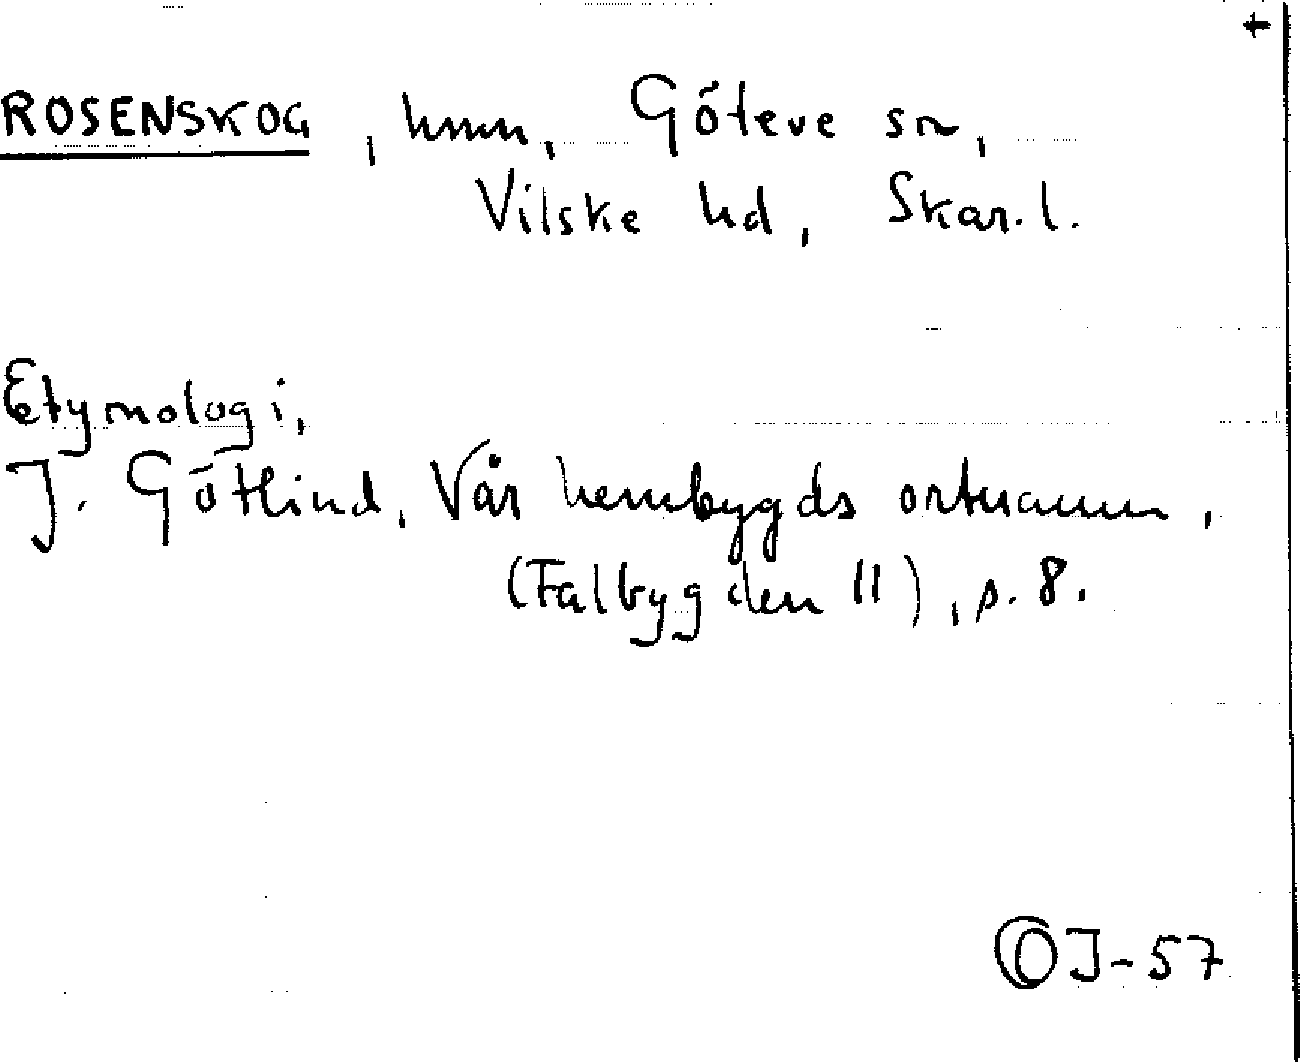 ROSENSKOG, hmn, Göteve sn,
Vilske hd, Skar. l.
Etymologi,
J. Götlind, Vår hembygds ortnamn,
(Falbygden II), s. 8.
OJ-57